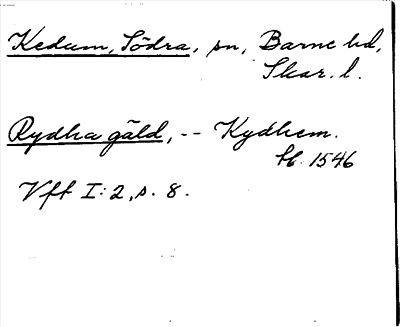 Kedum, Södra, sn, Barne hd,
Skar. l.
Rydha gäld, -- Kydhem.
tb. 1546
Vft I:2, s. 8.